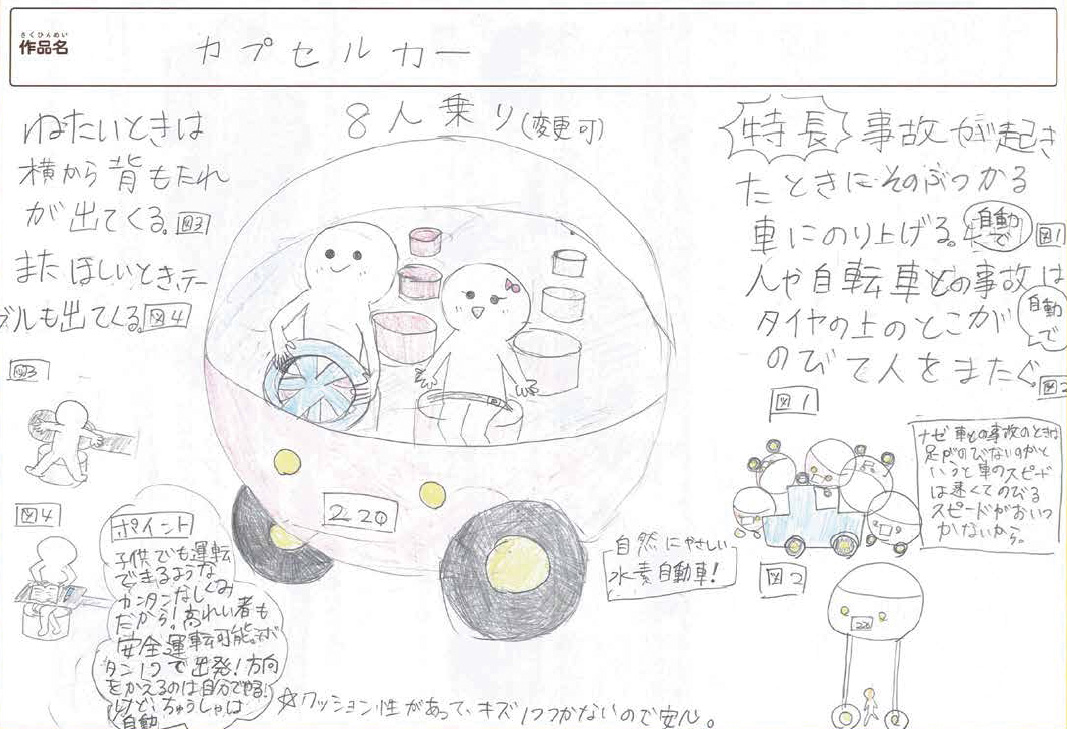 さくひんめい
作品名
カプセルカー
8人乗り(変更可)
ねたいときは
横から背もたれ
が出てくる。図3
またほしいとき、テー
ブルも出てくる図4
図3
図4
ポイント
子供でも運転
できるような
カンタンなしくみ
だから!高れい者も
安全運転可能。ボ
タン1つで出発!方向
をかえるのは自分でやる!
けど、ちゅうしゃは
自動
2-20
特長 事故が起き
たときにそのぶつかる
車にのり上げる。自動で 図1
人や自転車との事故は
タイヤの上のとこが 自動で
のびて人をまたぐ 図2
図1
ナゼ車との事故のときは
足がのびないのかと
いうと車のスピード
は速くてのびる
スピードがおいつ
かないから。
自然にやさしい
水素自動車!
図2
☆クッション性があって、キズ1つつかないので安心。